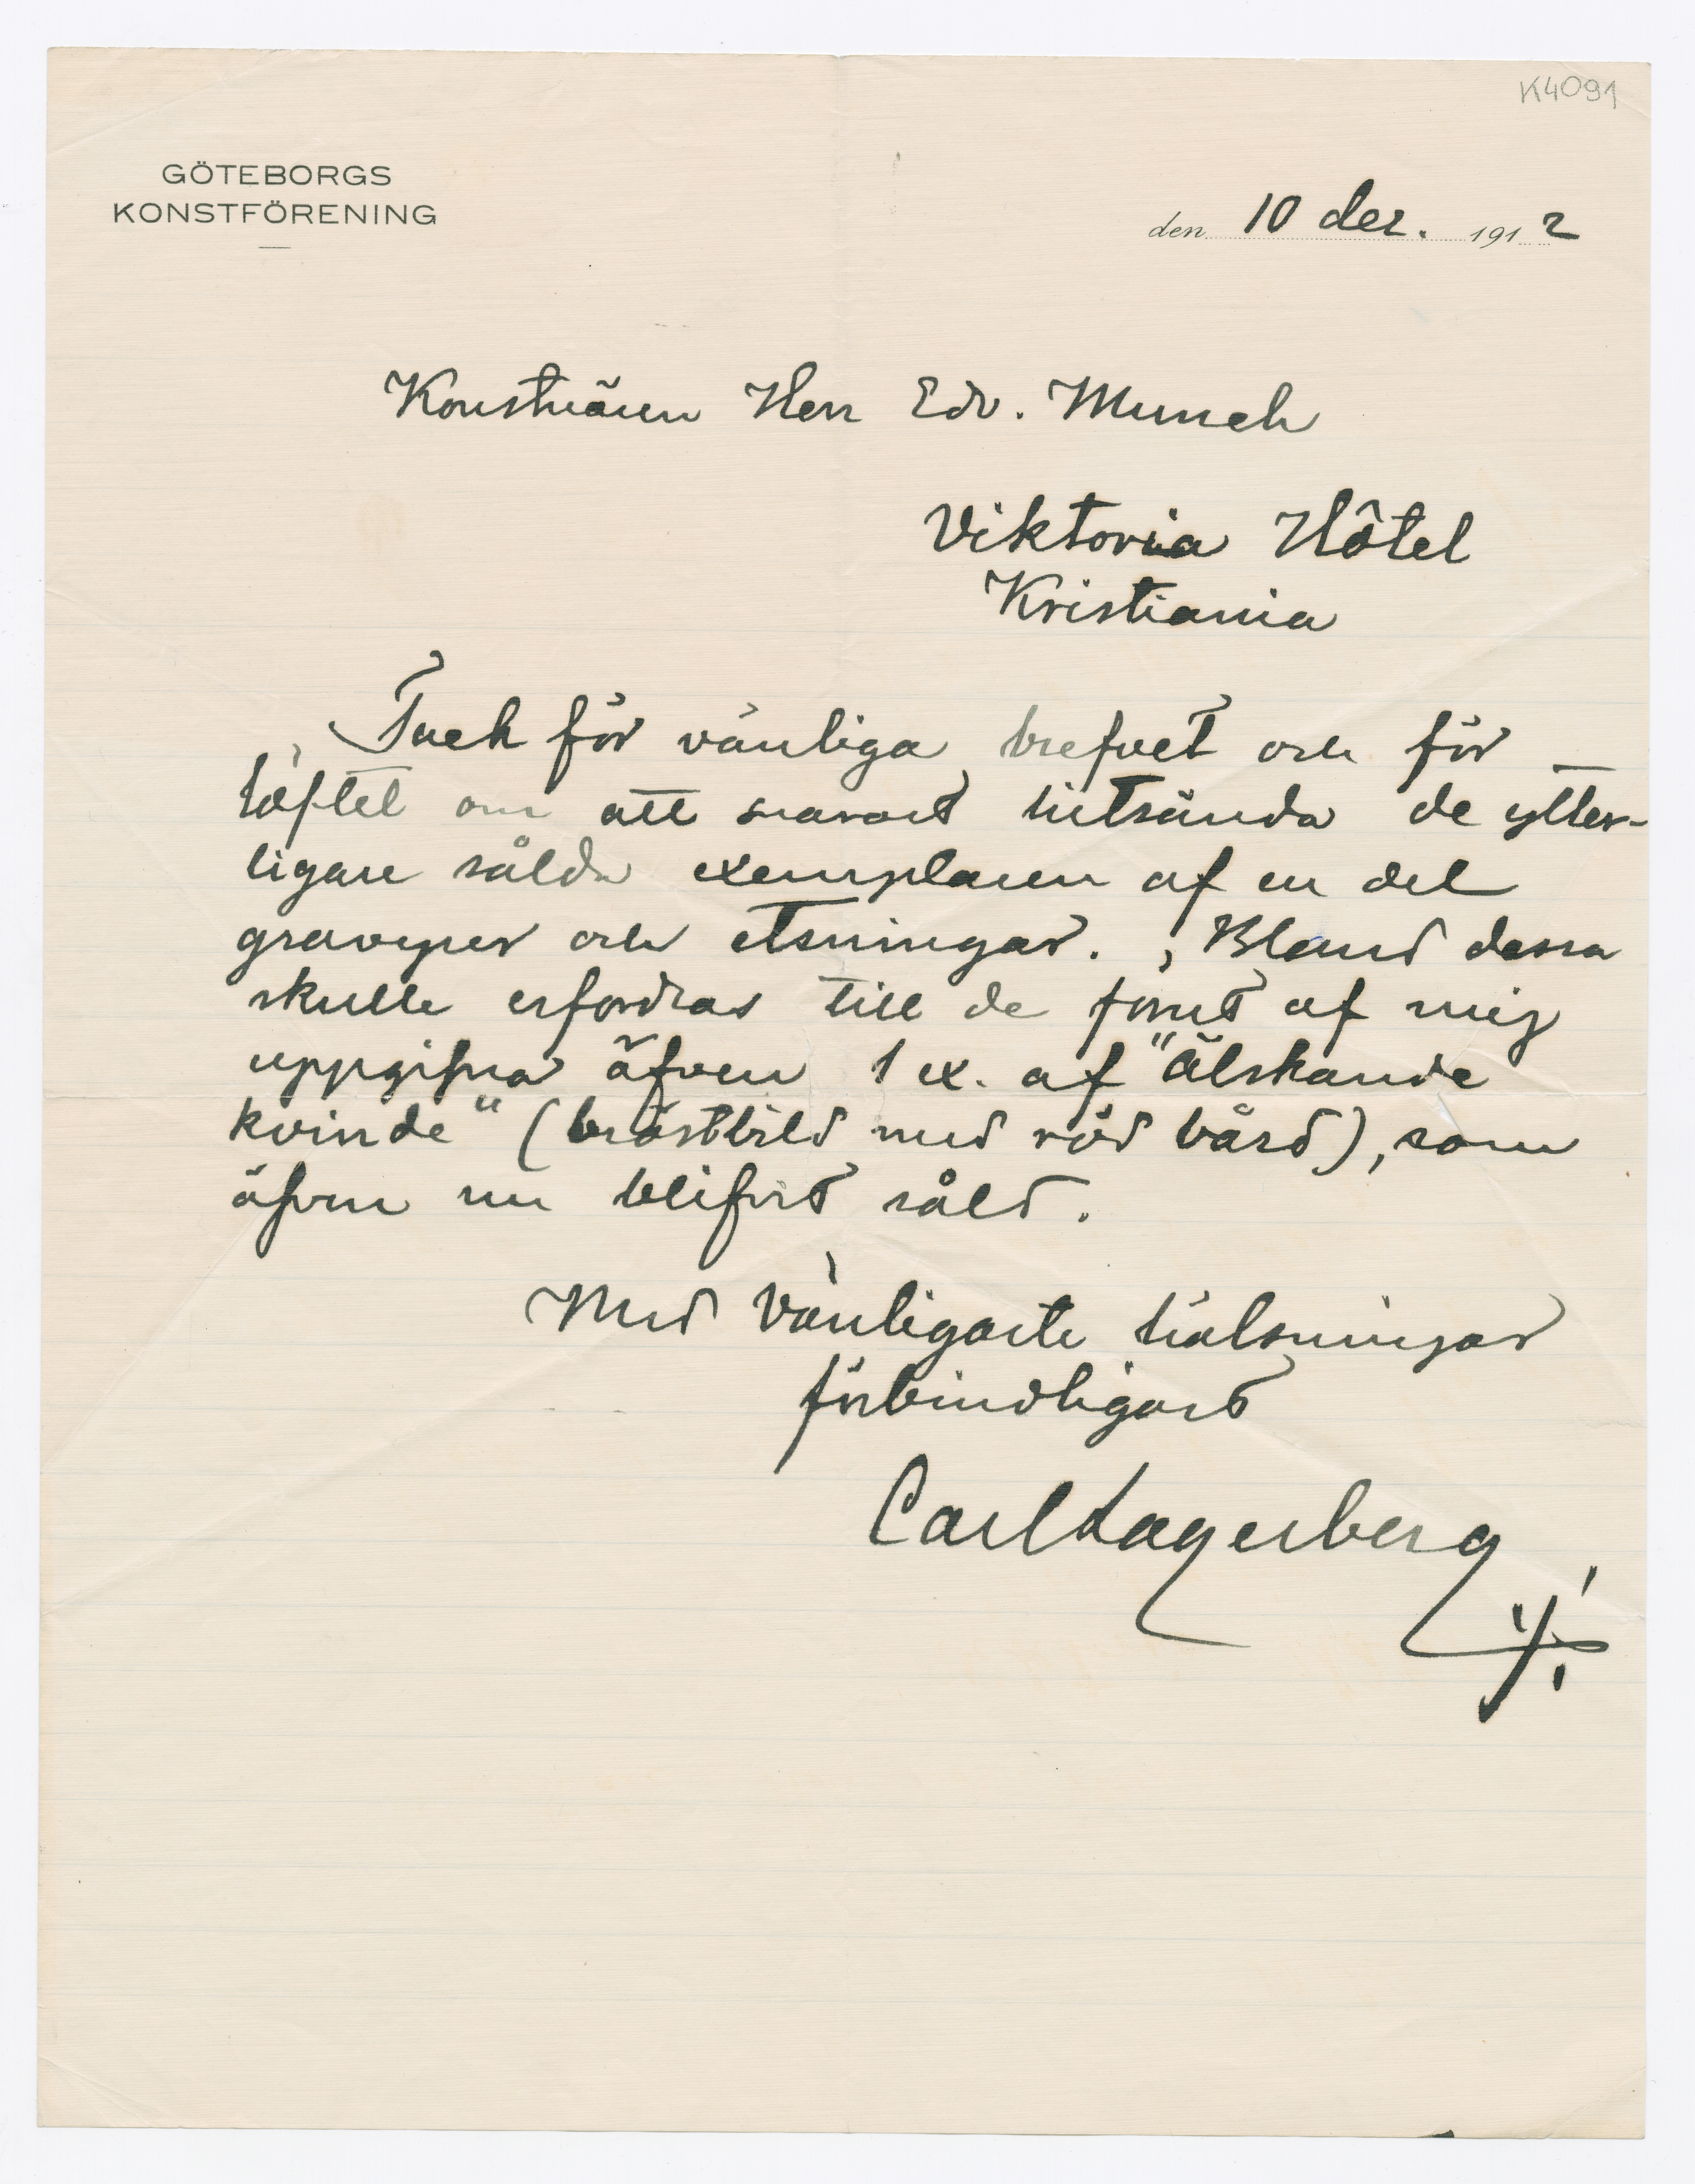 K4091
GÖTEBORGS
KONSTFÖRENING
den 10 dec. 1912
Konstnären Herr Edv. Munch
Viktoria Hôtel
Kristiania
Tack för vänliga brefvet och för
löftet om att snarast hitsända de ytter-
ligare sålda exemplaren af en del
gravyrer och etsningar. Bland dessa
skulle erfordras till de förut af mig
uppgifna äfven 1 ex. af "Älskande
kvinde" (bröstbild med röd bård), som
äfven nu blifvit såld.
Med vänligaste hälsningar
förbindligast
Carl Lagerberg